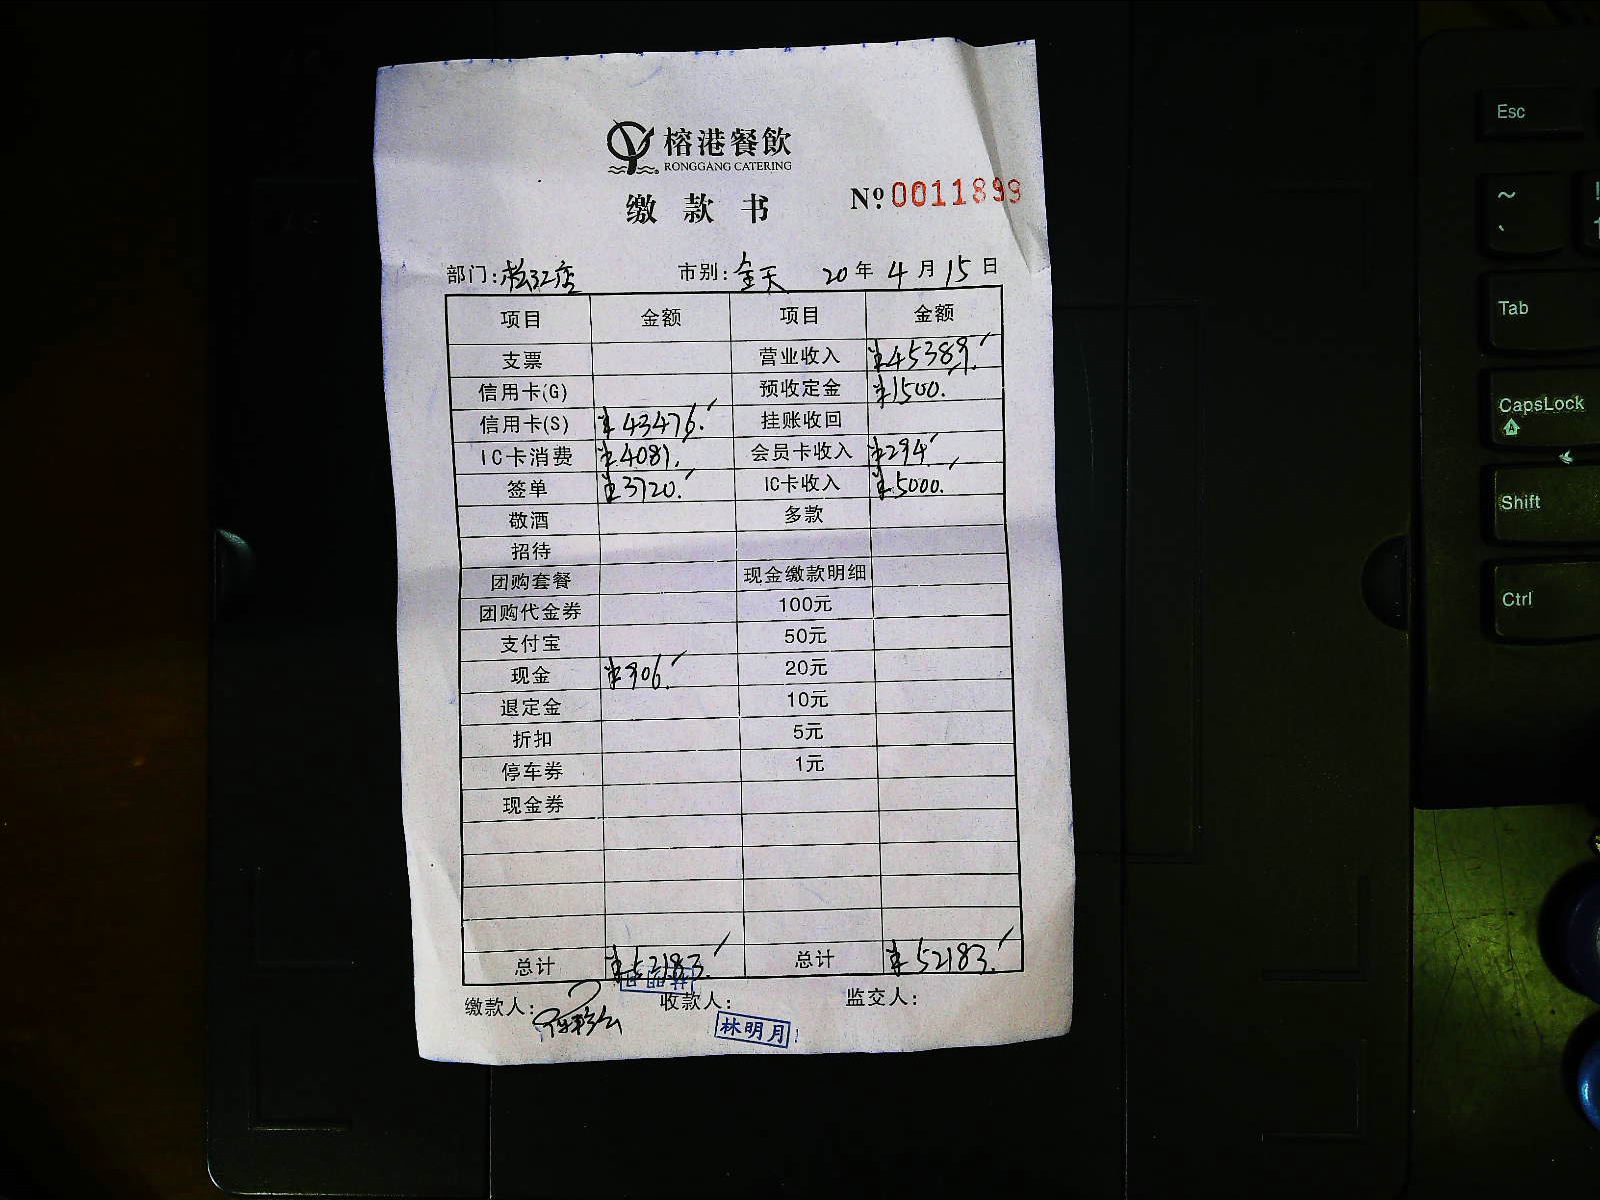 榕港餐飲
RONGGANG CATERING
缴款书 Nº:0011899
部门:松江店 市别:全天 20年4月15日
项目 金额 项目 金额
支票 营业收入 ¥45389.
信用卡(G) 预收定金 ¥1500.
信用卡(S) ¥43476. 挂账收回
IC卡消费 ¥4081. 会员卡收入 ¥294.
签单 ¥3720. IC卡收入 ¥5000.
敬酒 多款
招待
团购套餐 现金缴款明细
团购代金券 100元
支付宝 50元
现金 ¥906. 20元
退定金 10元
折扣 5元
停车券 1元
现金券
总计 ¥52183. 总计 ¥52183.
缴款人: 收款人: 监交人:
林明月
Esc
~
Tab
CapsLock
Shift
Ctrl